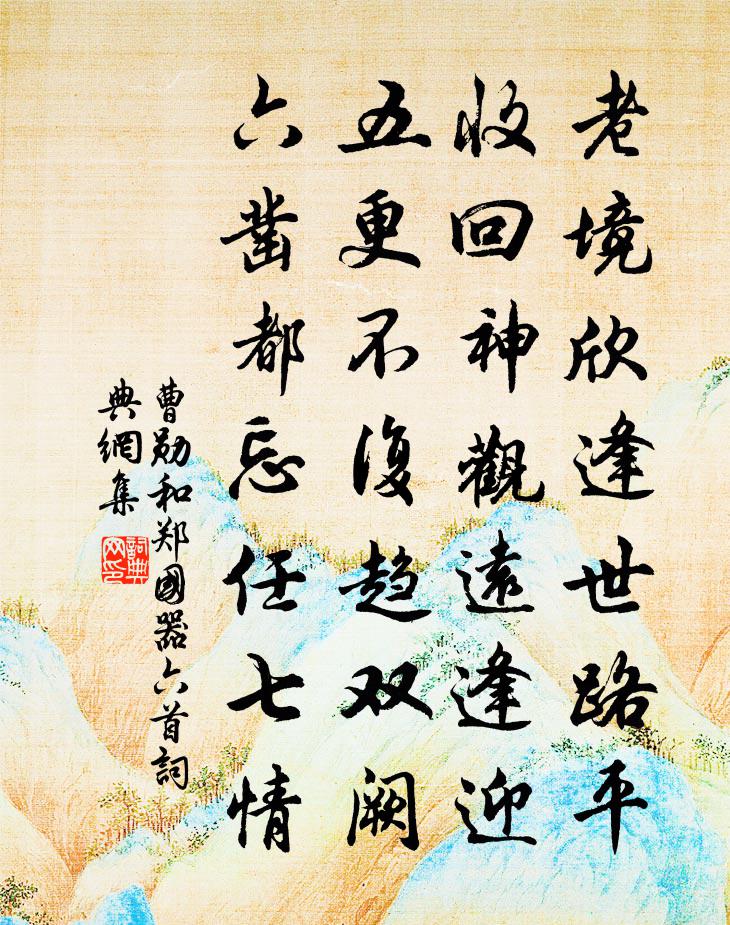 老境欣逢世路平
收回神觀遠逢迎
五更不復趋双阙
六凿都忘任七情
曹勋和郑國器六首詞
典網集
詞典
网印